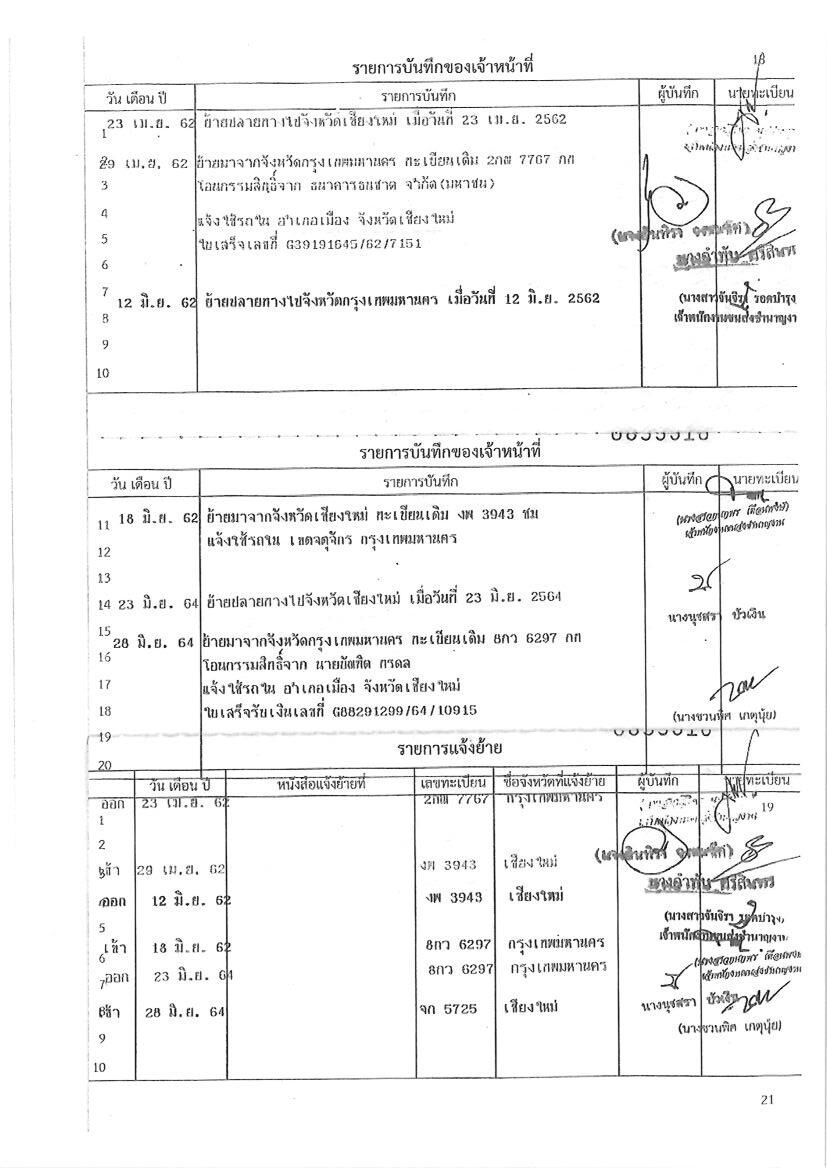 18
รายการบันทึกของเจ้าหน้าที่
วัน เดือน ปี รายการบันทึก ผู้บันทึก นายทะเบียน
1 23 เม.ย. 62 ย้ายปลายทางไปจังหวัดเชียงใหม่ เมื่อวันที่ 23 เม.ย. 2562
2 29 เม.ย. 62 ย้ายมาจากจังหวัดกรุงเทพมหานคร ทะเบียนเดิม 2กต 7767 กท
3 โอนกรรมสิทธิ์จาก ธนาคารธนชาต จำกัด(มหาชน)
4 แจ้งใช้รถใน อำเภอเมือง จังหวัดเชียงใหม่
5 ใบเสร็จเลขที่ G39191645/62/7151
6
7
12 มิ.ย. 62 ย้ายปลายทางไปจังหวัดกรุงเทพมหานคร เมื่อวันที่ 12 มิ.ย. 2562 (นางสาวจันจิรา รอดบำรุง
8 เจ้าพนักงานขนส่งชำนาญงา
9
10
รายการบันทึกของเจ้าหน้าที่
วัน เดือน ปี รายการบันทึก ผู้บันทึก นายทะเบียน
11 18 มิ.ย. 62 ย้ายมาจากจังหวัดเชียงใหม่ ทะเบียนเดิม งพ 3943 ชม
12 แจ้งใช้รถใน เขตจตุจักร กรุงเทพมหานคร
13
14 23 มิ.ย. 64 ย้ายปลายทางไปจังหวัดเชียงใหม่ เมื่อวันที่ 23 มิ.ย. 2564
นางนุชสรา บัวเงิน
15 28 มิ.ย. 64 ย้ายมาจากจังหวัดกรุงเทพมหานคร ทะเบียนเดิม 8กว 6297 กท
16 โอนกรรมสิทธิ์จาก นายบัณฑิต
17 แจ้งใช้รถใน อำเภอเมือง จังหวัดเชียงใหม่
18 ใบเสร็จรับเงินเลขที่ G88291299/64/10915 (นางชวนพิศ เกตุนุ้ย)
19
รายการแจ้งย้าย
20
วัน เดือน ปี หนังสือแจ้งย้ายที่ เลขทะเบียน ชื่อจังหวัดที่แจ้งย้าย ผู้บันทึก นายทะเบียน
ออก 23 เม.ย. 62 2กต 7767 กรุงเทพมหานคร
19
1
2
เข้า 29 เม.ย. 62 งพ 3943 เชียงใหม่
ออก 12 มิ.ย. 62 งพ 3943 เชียงใหม่
(นางสาวจันจิรา รอดบำรุง,
5 เจ้าพนักงานขนส่งชำนาญงาน
เข้า 18 มิ.ย. 62 8กว 6297 กรุงเทพมหานคร
6
7 ออก 23 มิ.ย. 64 8กว 6297 กรุงเทพมหานคร
เข้า 28 มิ.ย. 64 จก 5725 เชียงใหม่ นางนุชสรา บัวเงิน
(นางชวนพิศ เกตุนุ้ย)
9
10
21